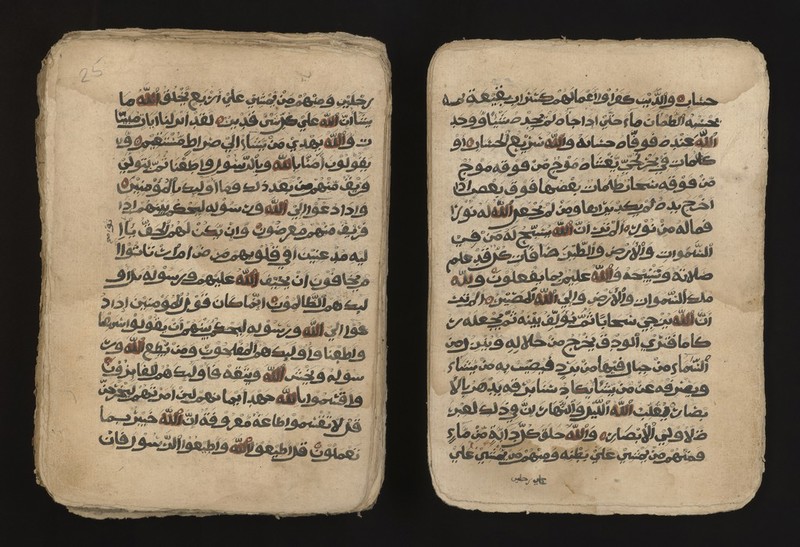 حساب والذين كفروا اعمالهم كسراب بقيعة
يحسبه الظمان ماء حتى اذا جاءه لم يجده شيئا ووجد
الله عنده فوفاه حسابه والله سريع الحساب او
كظلمات في بحر لجي يغشاه موج من فوقه موج
من فوقه سحاب ظلمات بعضها فوق بعض اذا
اخرج يده لم يكد يراها ومن لم يجعل الله له نورا
فما له من نور الم تر ان الله يسبح له من في
السموات والارض والطير صافات كل قد علم
صلاته وتسبيحه والله عليم بما يفعلون ولله
ملك السموات والارض والى الله المصير الم تر
ان الله يزجي سحابا ثم يولف بينه ثم يجعله ر
كاما فترى الودق يخرج من خلاله وينزل من
السماء من جبال فيها من برد فيصيب به من يشاء
ويصرفه عن من يشاء يكاد سنا برقه يذهب بالا
بصار يقلب الله الليل والنهار ان في ذلك لعبر
ة لاولي الابصار والله خلق كل دابة من ماء
فمنهم من يمشي على بطنه ومنهم من يمشي على
على رجلين
25
رجلين ومنهم من يمشي على اربع يخلق الله ما
يشاء ان الله على كل شيء قدير لقد انزلنا ايات مبينا
ت والله يهدي من يشاء الى صراط مستقيم و
يقولون امنا بالله وبالرسول واطعنا ثم يتولى
فريق منهم من بعد ذلك وما اوليك بالمومنين
واذا دعوا الى الله ورسوله ليحكم بينهم اذا
فريق منهم معرضون وان يكن لهم الحق ياتوا
اليه مذعنين افي قلوبهم مرض ام ارتابوا ا
م يخافون ان يحيف الله عليهم ورسوله بل او
ليك هم الظالمون انما كان قول المومنين اذا د
عوا الى الله ورسوله ليحكم بينهم ان يقولوا سمعنا
واطعنا واوليك هم المفلحون ومن يطع الله ور
سوله ويخش الله ويتقه فاوليك هم الفايزون
واقسموا بالله جهد ايمانهم لين امرتهم ليخرجن
قل لا تقسموا طاعة معروفة ان الله خبير بما
تعملون قل اطيعوا الله واطيعوا الرسول فان